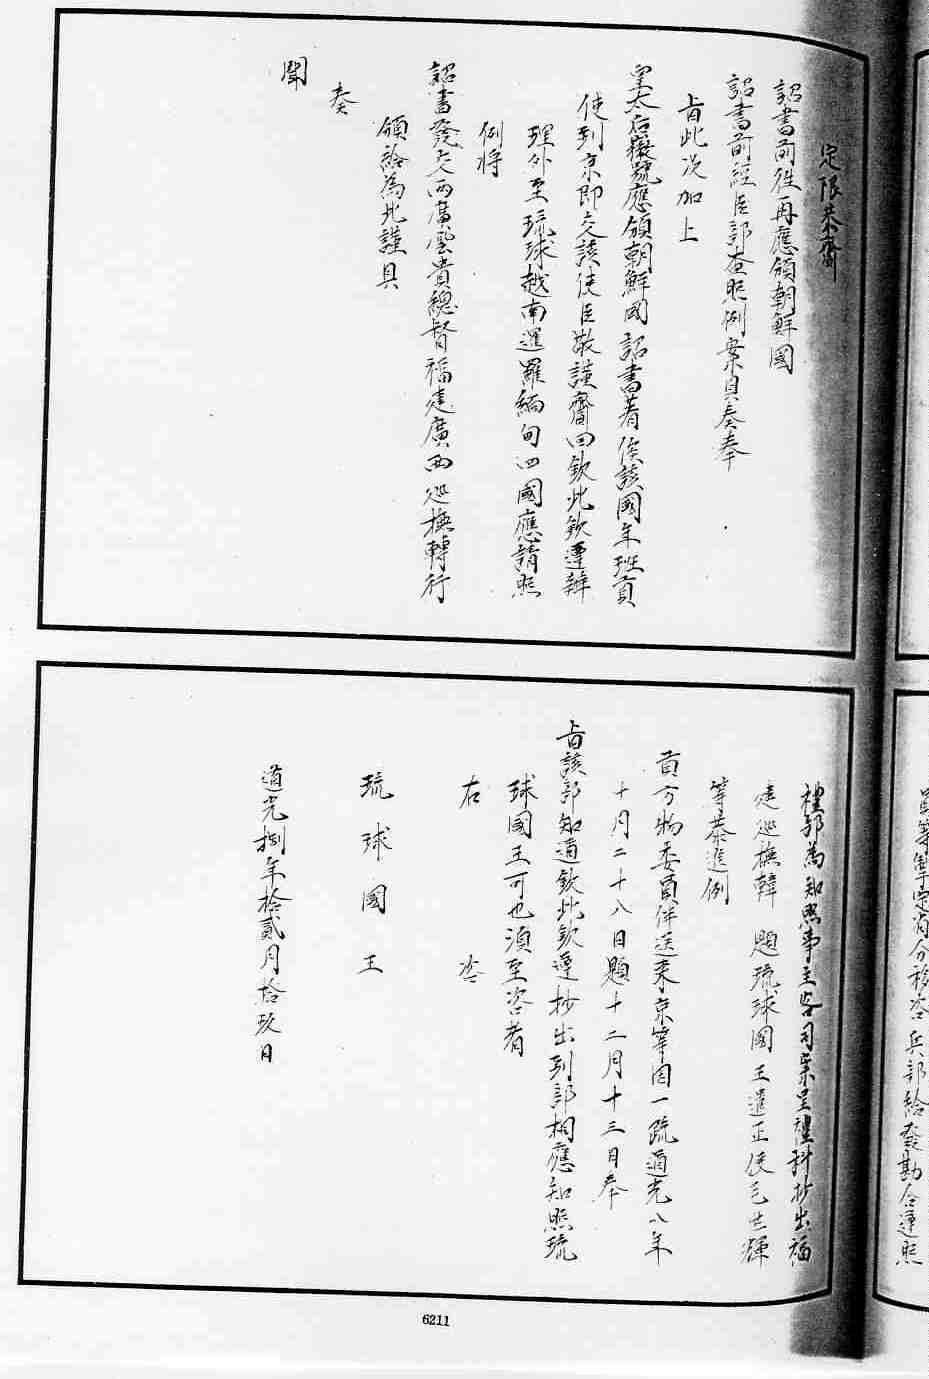 定限恭齎
詔書前徃再應頒朝鮮國
詔書前經臣部查照例案具奏奉
旨此次加上
皇太后徽號應頒朝鮮國詔書着俟該國年班貢
使到京即交該使臣敬謹齎回欽此欽遵辦
理外至琉球越南暹羅緬甸四國應請照
例將
詔書發交兩廣雲貴總督福建廣西巡撫轉行
頒給為此謹具
奏
聞
禮部為知照事主客司案呈禮科抄出福
建巡撫韓 題琉球國王遣正使毛世輝
等恭進例
貢方物委員伴送來京等因一疏道光八年
十月二十八日題十二月十三日奉
旨該部知道欽此欽遵抄出到部相應知照琉
球國王可也須至咨者
右 咨
琉球國王
道光捌年拾貳月拾玖日
等 分移咨兵部給發勘合遵照
6211